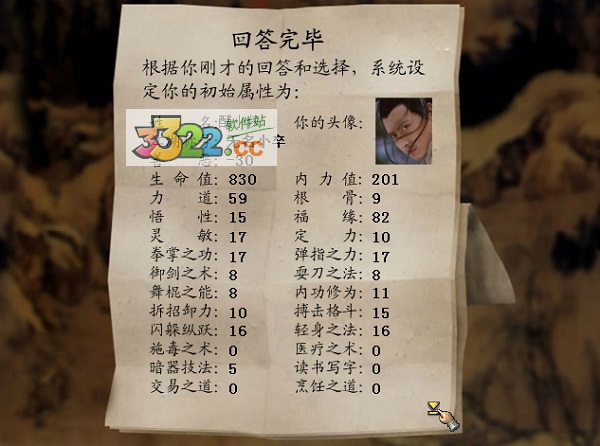 回答完毕
根据你刚才的回答和选择，系统设
定你的初始属性为：
名:醉 你的头像：
3322 软件站 .cc 名小卒
-30
生命值: 830 内力值: 201
力道: 59 根骨: 9
悟性: 15 福缘: 82
灵敏: 17 定力: 10
拳掌之功: 17 弹指之力: 17
御剑之术: 8 耍刀之法: 8
舞棍之能: 8 内功修为: 11
拆招卸力: 10 搏击格斗: 15
闪躲纵跃: 16 轻身之法: 16
施毒之术: 0 医疗之术: 0
暗器技法: 5 读书写字: 0
交易之道: 0 烹饪之道: 0